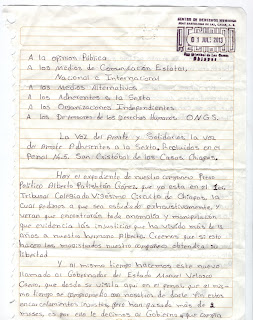 CENTRO DE DERECHOS HUMANOS
01 JUL. 2013
A la opinion Pública
A los Medios de Comunicación Estatal,
Nacional e Internacional
A los Medios Alternativos
A los Adherentes a la Sexta
A las Organizaciones Independientes
A los Defensores de los Derechos Humanos ONGS.
La Voz del Amate y Solidarios de la voz
de Amate Adherentes a la Sexta, Recluidos en el
Penal No. 5 San Cristobal de las Casas Chiapas.
Hoy el expediente de nuestro compañero Preso
Político Alberto Patishtán Gómez que ya esta en el 1er
Tribunal Colegiado Vigésimo Circuito de Chiapas, la
cual pedimos a que sea estudiado exhaustivamente, y
veran que encontrarán toda anomalía y manipulación
que evidencia las injusticias que ha vivido más de 13
Años a nuestro hermano Alberto. Creemos que si esto
hacen los magistrados nuestro compañero obtendría su
libertad.
Y al mismo tiempo hacemos este nuevo
llamado al Gobernador de Estado Manuel Velasco
Coello, que desde su visita aqui en el penal que al mis-
mo tiempo se comprometio con nosotros de darle fin estos
encarcelamientos injustos, pero han pasado más de
meses, es por esto le decimos al Gobierno que cumpla